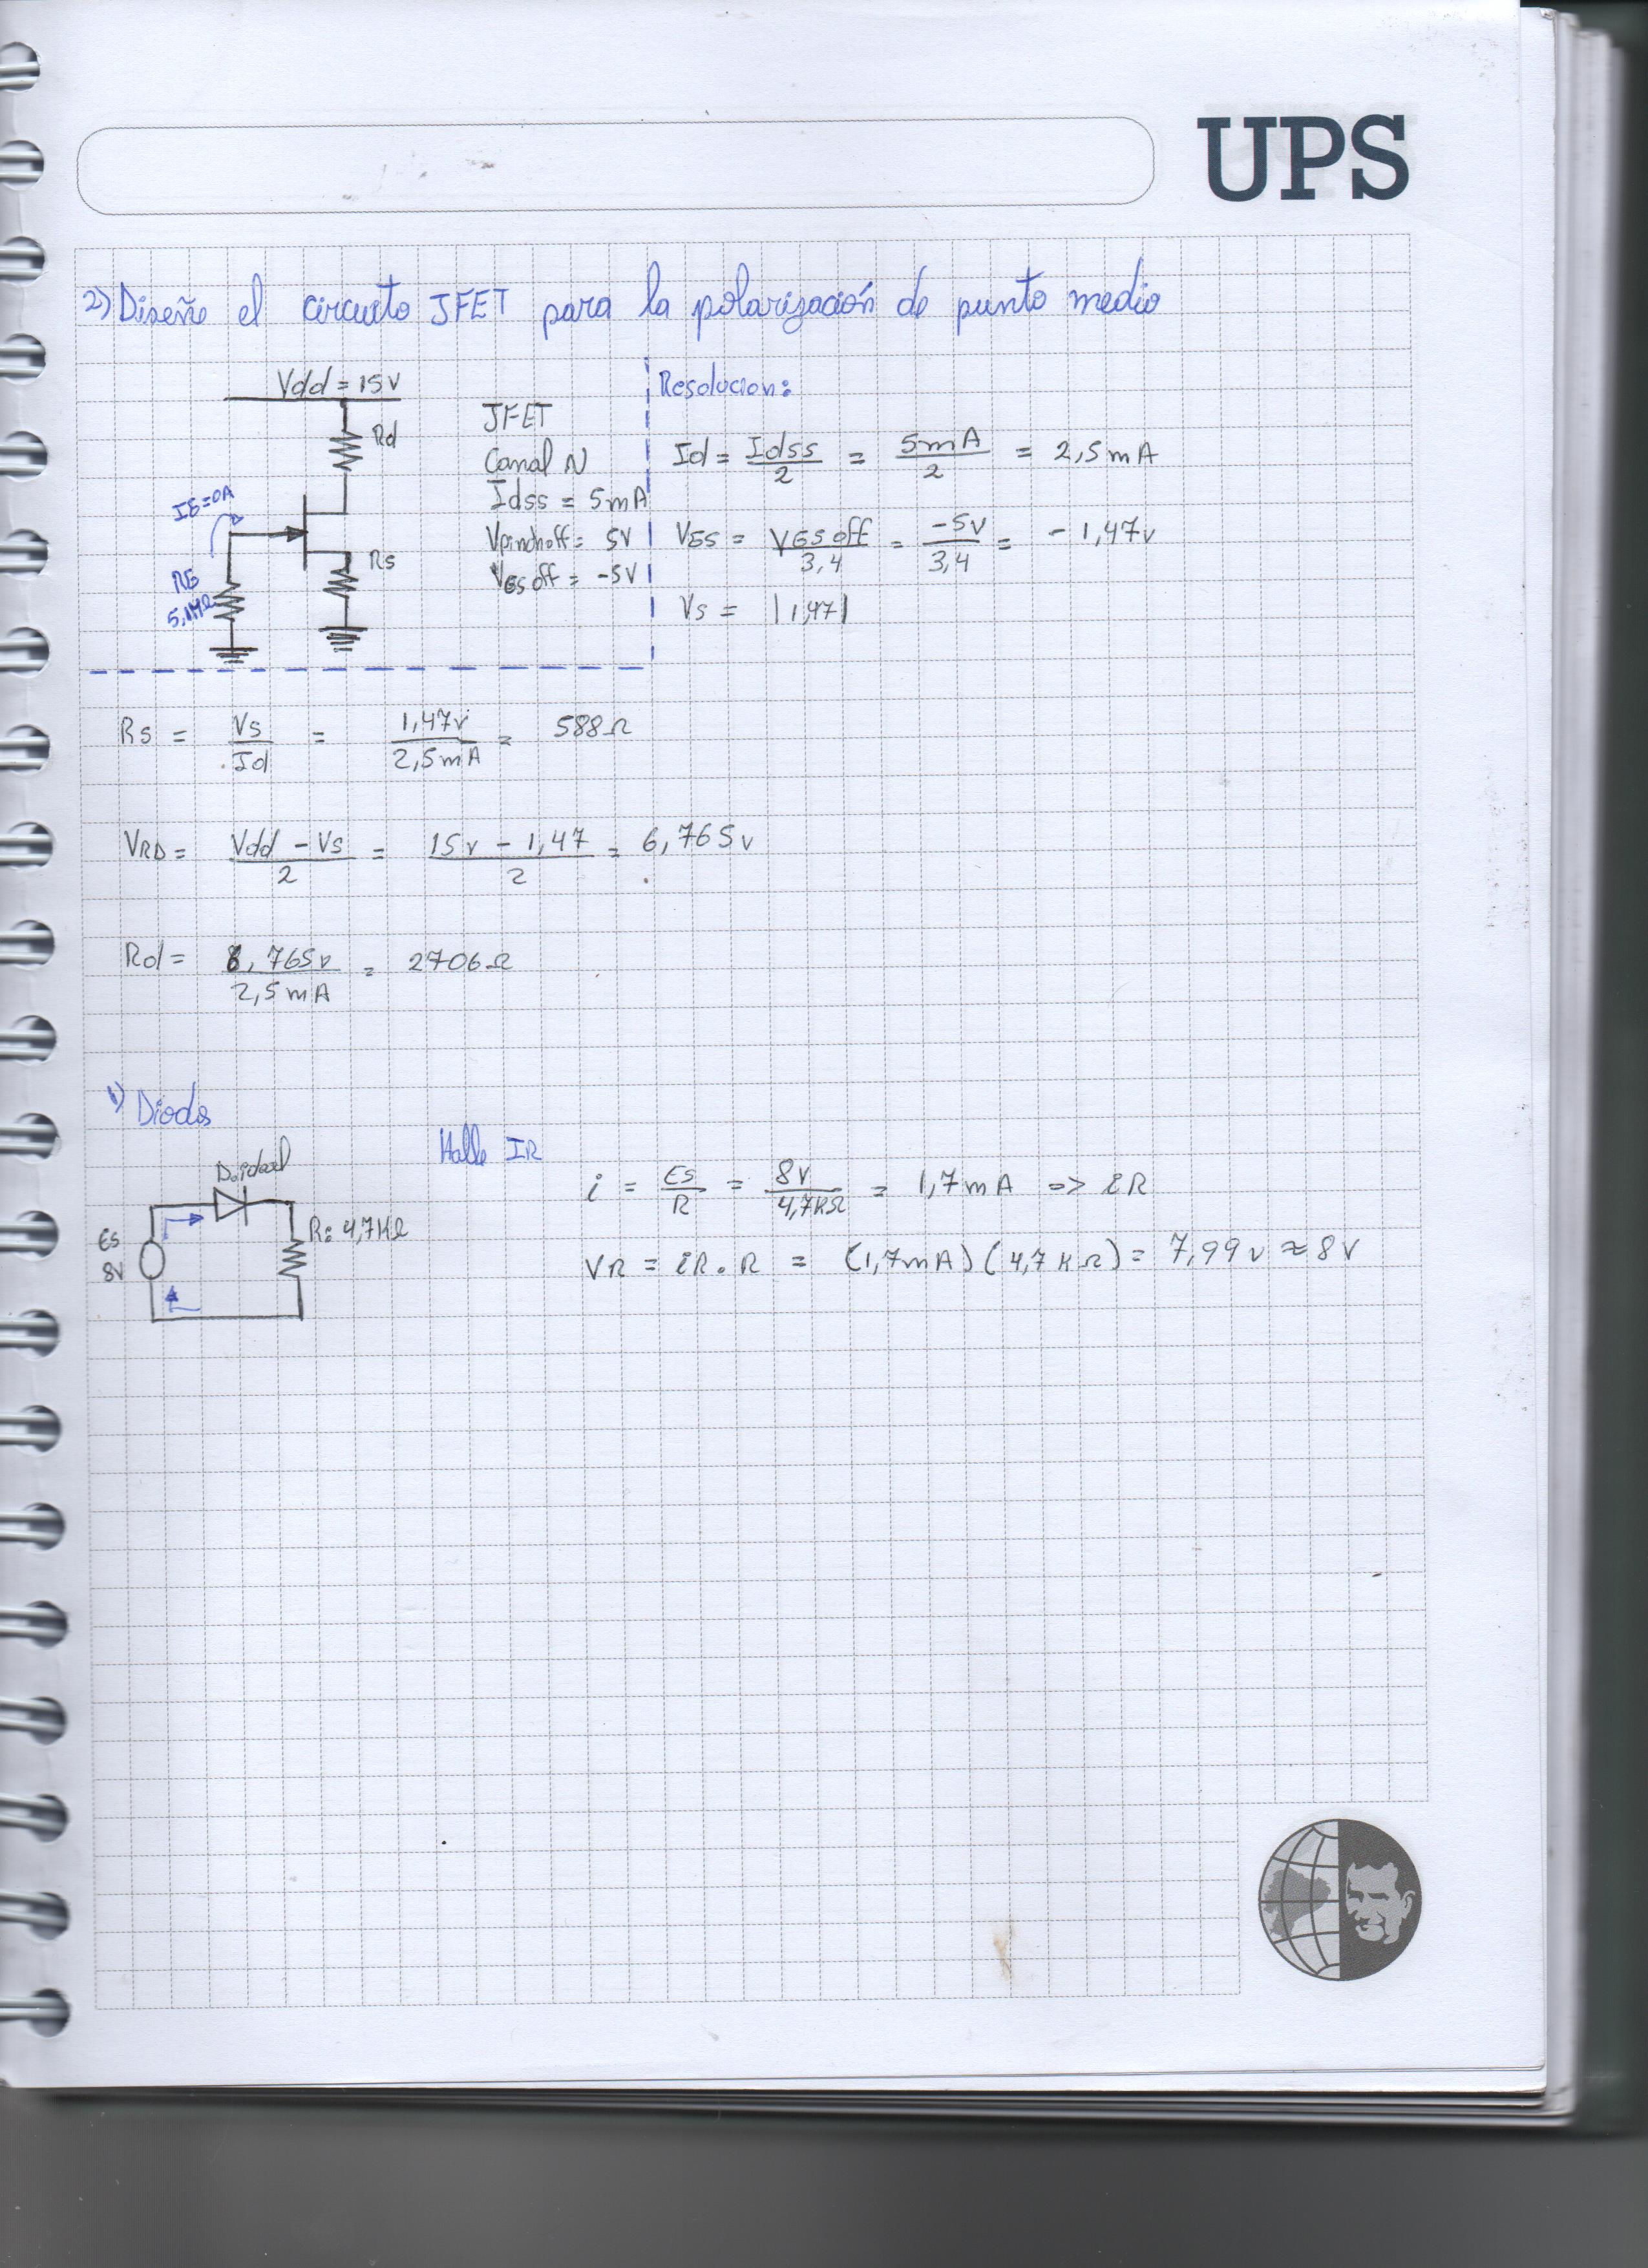 UPS
2) Diseñe el circuito JFET para la polarización de punto medio
Vdd = 15v
Rd
IG=0A
RG
5,1MΩ
Rs
JFET
Canal N
Idss = 5mA
Vpinchoff = 5V
VGSoff = -5V
Resolucion:
Id = Idss/2 = 5mA/2 = 2,5mA
VGS = VGSoff/3,4 = -5V/3,4 = -1,47v
Vs = |1,47|
Rs = Vs/Id = 1,47v/2,5mA = 588Ω
VRD = Vdd - Vs/2 = 15v - 1,47/2 = 6,765v
Rd = 6,765v/2,5mA = 2706Ω
1) Diodos
Halle IR
D.ideal
Es
8V
R: 4,7KΩ
i = Es/R = 8V/4,7KΩ = 1,7mA => iR
VR = iR.R = (1,7mA)(4,7KΩ) = 7,99v ≈ 8V